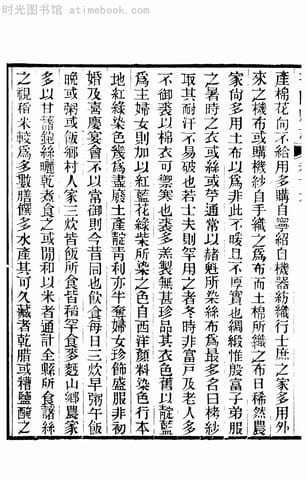 时光图书馆 - atimebook.com
產棉花向不給用多購自寧紹自機器紡織行士庶之家多用外
來之機布或購機紗自手織之為布而土棉所織之布日稀然農
家尚多用土布以為非此不暖且不厚實也綢緞惟殷富子弟服
之暑時之衣或絲或苧通常以赭魁所染絲布為最多名曰栲紗
取其耐汗不易破也若士夫則罕用之者冬時非富戶及老人多
不御裘以棉衣可禦寒也裘多羔製無甚珍品其衣色舊以靛藍
為主婦女則加以紅藍花綠柴所染之色自西洋顏料染色行本
地紅綠染色幾為盡廢土產靛青利亦半奪婦女珍飾盛服非初
婚及喜慶宴會不以常御則今昔同也飲食每日三炊早粥午飯
晚或粥或飯鄉村人家三炊皆飯所食皆稻罕食麥麪山鄉農家
多以甘藷絲曬乾煮食之或閒和以米者通計全縣所食藷絲
之視稻米較為多數膳饌多水產其可久藏者乾腊或糟鹽醃之